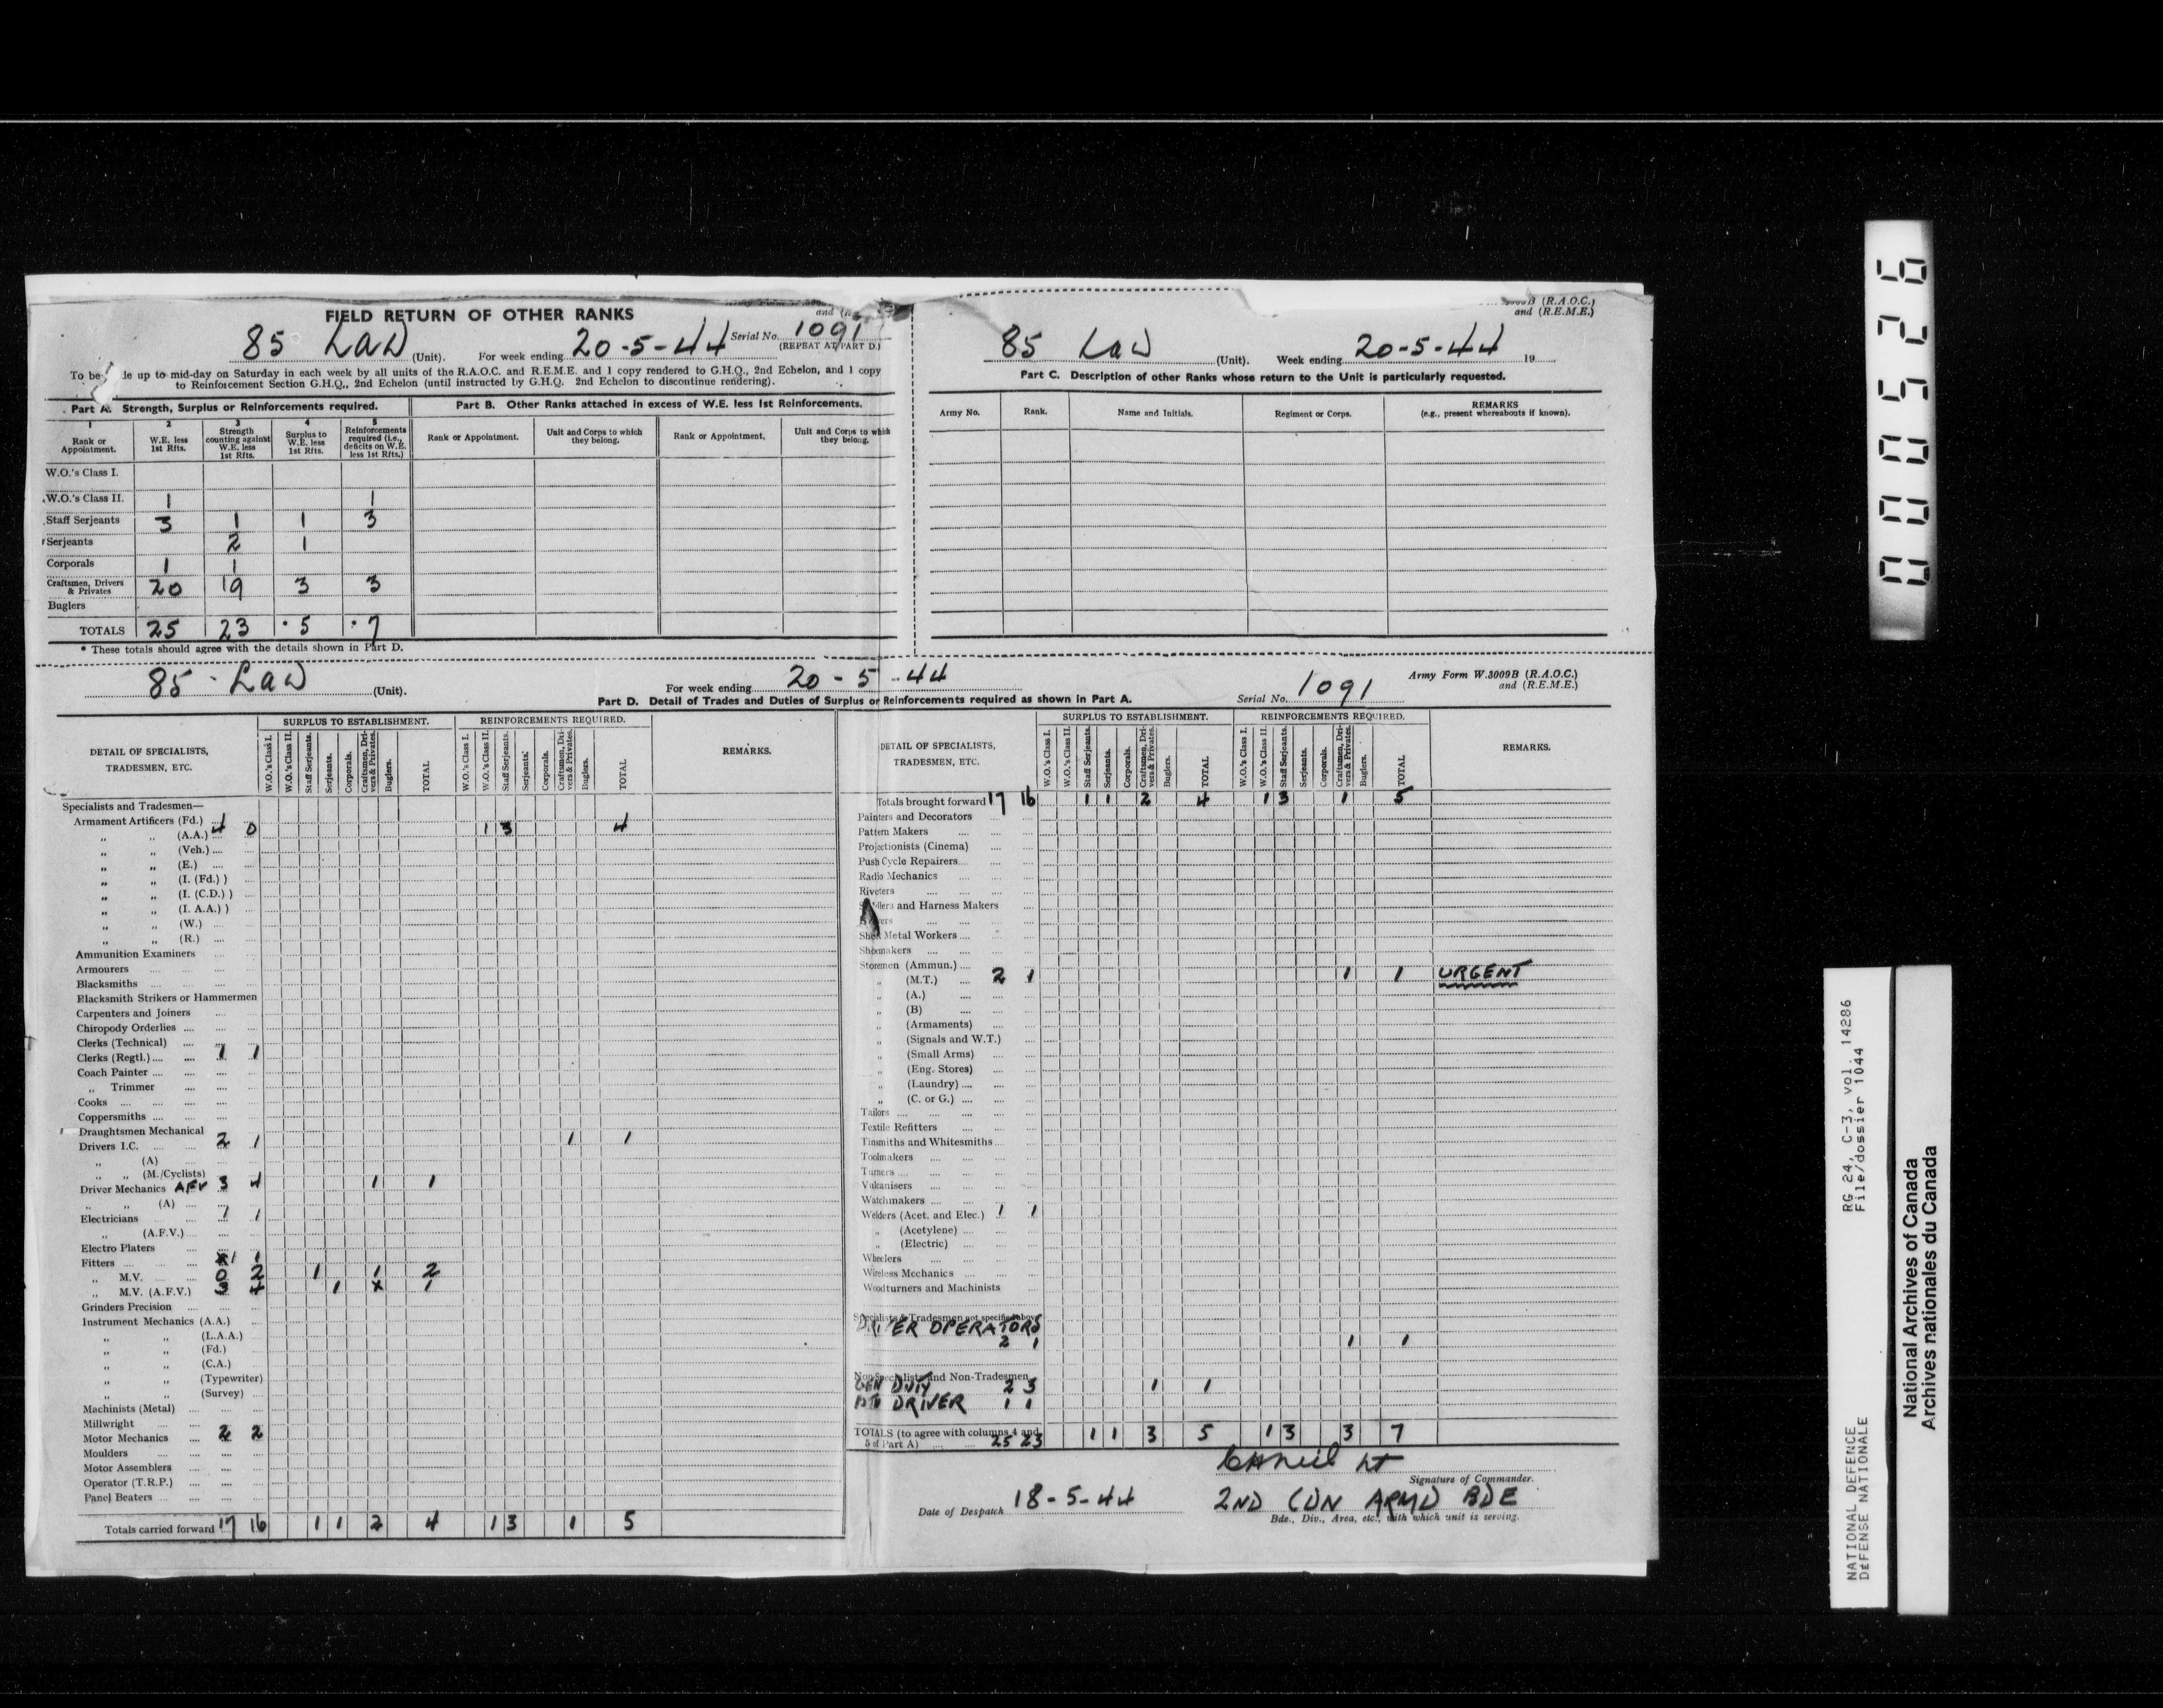 FIELD RETURN OF OTHER RANKS
and
85 LAD (Unit). For week ending 20-5-44 Serial No. 1091
(REPEAT AT PART D.)
To be de up to mid-day on Saturday in each week by all units of the R.A.O.C. and R.E.M.E. and 1 copy rendered to G.H.Q., 2nd Echelon, and 1 copy
to Reinforcement Section G.H.Q., 2nd Echelon (until instructed by G.H.Q. 2nd Echelon to discontinue rendering).
Part A. Strength, Surplus or Reinforcements required.
1 2 3 4 5
Rank or Appointment. W.E. less 1st Rfts. Strength counting against W.E. less 1st Rfts. Surplus to W.E. less 1st Rfts. Reinforcements required (i.e., deficits on W.E. less 1st Rfts.)
W.O.'s Class I.
W.O.'s Class II. 1 1
Staff Serjeants 3 1 1 3
Serjeants 2 1
Corporals 1 1
Craftsmen, Drivers & Privates 20 19 3 3
Buglers
TOTALS 25 23 • 5 • 7
* These totals should agree with the details shown in Part D.
Part B. Other Ranks attached in excess of W.E. less 1st Reinforcements.
Rank or Appointment. Unit and Corps to which they belong. Rank or Appointment. Unit and Corps to which they belong.
3009B (R.A.O.C.)
and (R.E.M.E.)
85 LAD (Unit). Week ending 20-5-44 19
Part C. Description of other Ranks whose return to the Unit is particularly requested.
Army No. Rank. Name and Initials. Regiment or Corps. REMARKS (e.g., present whereabouts if known).
85 LAD (Unit). For week ending 20-5-44 Serial No. 1091 Army Form W.3009B (R.A.O.C.)
and (R.E.M.E.)
Part D. Detail of Trades and Duties of Surplus or Reinforcements required as shown in Part A.
DETAIL OF SPECIALISTS, TRADESMEN, ETC. SURPLUS TO ESTABLISHMENT. REINFORCEMENTS REQUIRED. REMARKS.
W.O.'s Class I. W.O.'s Class II. Staff Serjeants. Serjeants. Corporals. Craftsmen, Drivers & Privates. Buglers. TOTAL W.O.'s Class I. W.O.'s Class II. Staff Serjeants. Serjeants. Corporals. Craftsmen, Drivers & Privates. Buglers. TOTAL
Specialists and Tradesmen—
Armament Artificers (Fd.)
,, ,, (A.A.) 4 0 1 3 4
,, ,, (Veh.)
,, ,, (E.)
,, ,, (I. (Fd.) )
,, ,, (I. (C.D.) )
,, ,, (I. A.A.) )
,, ,, (W.)
,, ,, (R.)
Ammunition Examiners
Armourers
Blacksmiths
Blacksmith Strikers or Hammermen
Carpenters and Joiners
Chiropody Orderlies
Clerks (Technical)
Clerks (Regtl.) 1 1
Coach Painter
,, Trimmer
Cooks
Coppersmiths
Draughtsmen Mechanical
Drivers I.C. 2 1 1 1
,, (A)
,, ,, (M./Cyclists)
Driver Mechanics AFV 3 4 1 1
,, ,, (A)
Electricians 1 1
,, (A.F.V.)
Electro Platers
Fitters 1 1
,, M.V. 0 2 1 1 2
,, M.V. (A.F.V.) 3 4 1 x 1
Grinders Precision
Instrument Mechanics (A.A.)
,, ,, (L.A.A.)
,, ,, (Fd.)
,, ,, (C.A.)
,, ,, (Typewriter)
,, ,, (Survey)
Machinists (Metal)
Millwright
Motor Mechanics 2 2
Moulders
Motor Assemblers
Operator (T.R.P.)
Panel Beaters
Totals carried forward 17 16 1 1 2 4 1 3 1 5
DETAIL OF SPECIALISTS, TRADESMEN, ETC. SURPLUS TO ESTABLISHMENT. REINFORCEMENTS REQUIRED. REMARKS.
W.O.'s Class I. W.O.'s Class II. Staff Serjeants. Serjeants. Corporals. Craftsmen, Drivers & Privates. Buglers. TOTAL W.O.'s Class I. W.O.'s Class II. Staff Serjeants. Serjeants. Corporals. Craftsmen, Drivers & Privates. Buglers. TOTAL
Totals brought forward 17 16 1 1 2 4 1 3 1 5
Painters and Decorators
Pattern Makers
Projectionists (Cinema)
Push Cycle Repairers
Radio Mechanics
Riveters
and Harness Makers
Metal Workers
Shoemakers
Storemen (Ammun.)
,, (M.T.) 2 1 1 1 URGENT
,, (A.)
,, (B)
,, (Armaments)
,, (Signals and W.T.)
,, (Small Arms)
,, (Eng. Stores)
,, (Laundry)
,, (C. or G.)
Tailors
Textile Refitters
Tinsmiths and Whitesmiths
Toolmakers
Turners
Vulcanisers
Watchmakers
Welders (Acet. and Elec.) 1 1
,, (Acetylene)
,, (Electric)
Wheelers
Wireless Mechanics
Woodturners and Machinists
Specialists & Tradesmen not specified above
DRIVER OPERATORS
2 1 1 1
Non-Specialists and Non-Tradesmen
GEN DUTY 2 3 1 1
DRIVER 1 1
TOTALS (to agree with columns 4 and 5 of Part A) 25 23 1 1 3 5 1 3 3 7
Lt
Signature of Commander.
Date of Despatch 18-5-44 2ND CDN ARMD BDE
Bde., Div., Area, etc., with which unit is serving.
000526
RG 24, C-3, vol. 14286
File/dossier 1044
NATIONAL DEFENCE
DÉFENSE NATIONALE
National Archives of Canada
Archives nationales du Canada